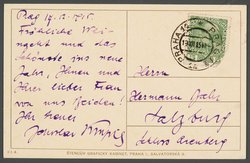 Prag 17.12.1915.
Fröhliche Wei-
nacht und das
Schönste ins neue
Jahr, Ihnen und
Ihrer lieben Frau
von uns beiden!
Ihr treuer
PRAHA
Herrn
Hermann Bahr
Salzburg
Schloss Arenberg
ŠTENCŮV GRAFICKÝ KABINET, PRAHA I., SALVÁTORSKÁ